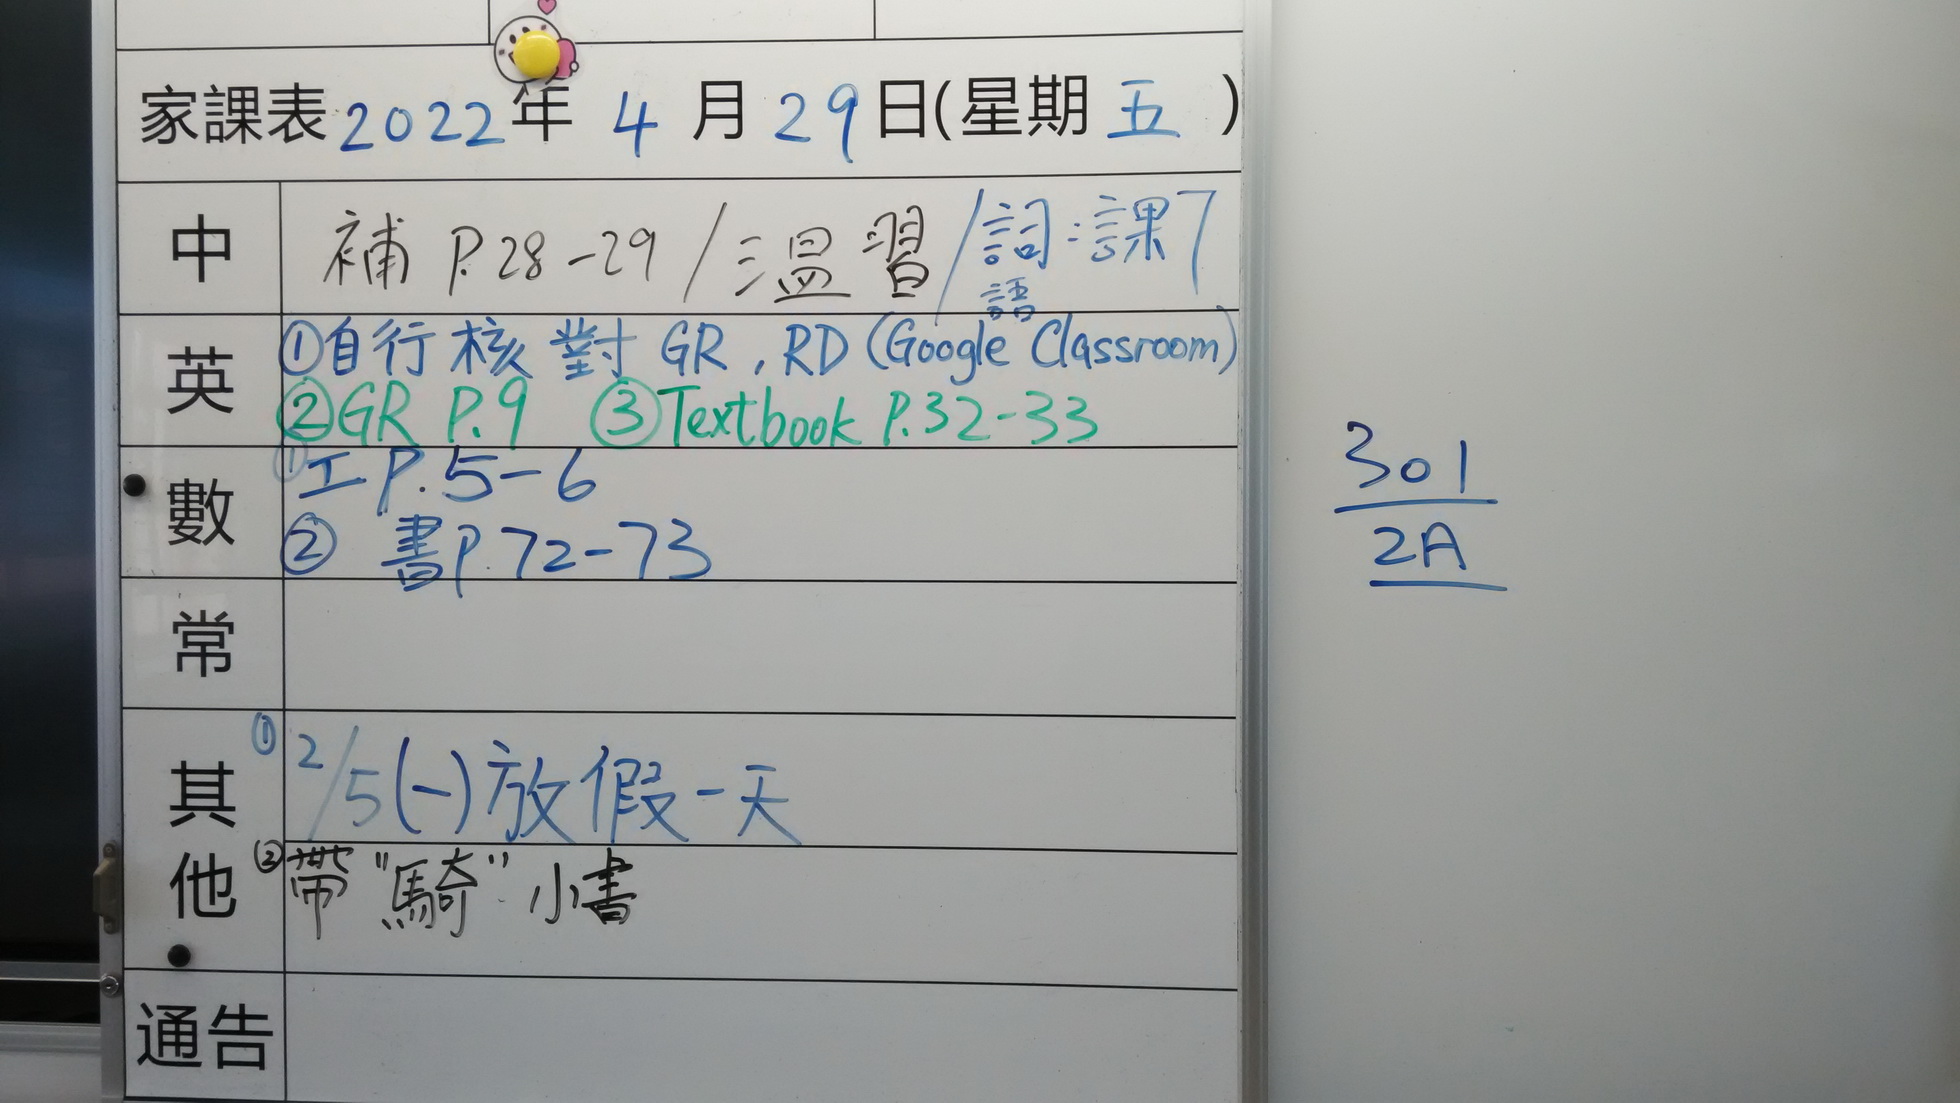 家課表 2022年 4 月 29日(星期 五 )
中
補 P.28-29 / 溫習 / 詞語:課7
英
①自行核對 GR, RD (Google Classroom)
②GR P.9 ③Textbook P.32-33
數
①工P.5-6
② 書P.72-73
常
其他
① 2/5(一)放假一天
②帶"騎"小書
通告
301
2A